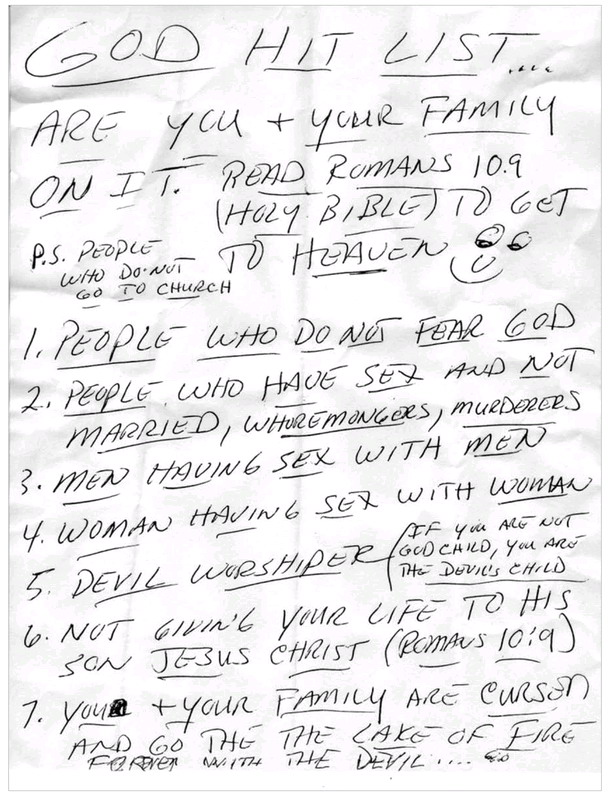 GOD HIT LIST....
ARE YOU + YOUR FAMILY
ON IT. READ ROMANS 10.9
(HOLY BIBLE) TO GET
TO HEAVEN
P.S. PEOPLE
WHO DO NOT
GO TO CHURCH
1. PEOPLE WHO DO NOT FEAR GOD
2. PEOPLE WHO HAVE SEX AND NOT
MARRIED, WHOREMONGERS, MURDERERS
3. MEN HAVING SEX WITH MEN
4. WOMAN HAVING SEX WITH WOMAN
5. DEVIL WORSHIPER (IF YOU ARE NOT
GOD CHILD, YOU ARE
THE DEVILS CHILD
6. NOT GIVING YOUR LIFE TO HIS
SON JESUS CHRIST (ROMANS 10:9)
7. YOU + YOUR FAMILY ARE CURSED
AND GO THE THE LAKE OF FIRE
FOREVER WITH THE DEVIL....